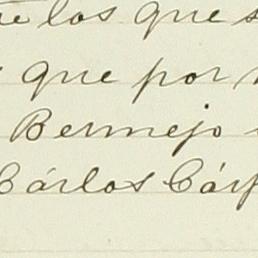 los que
que por
Bermejo
Cárlos Cár